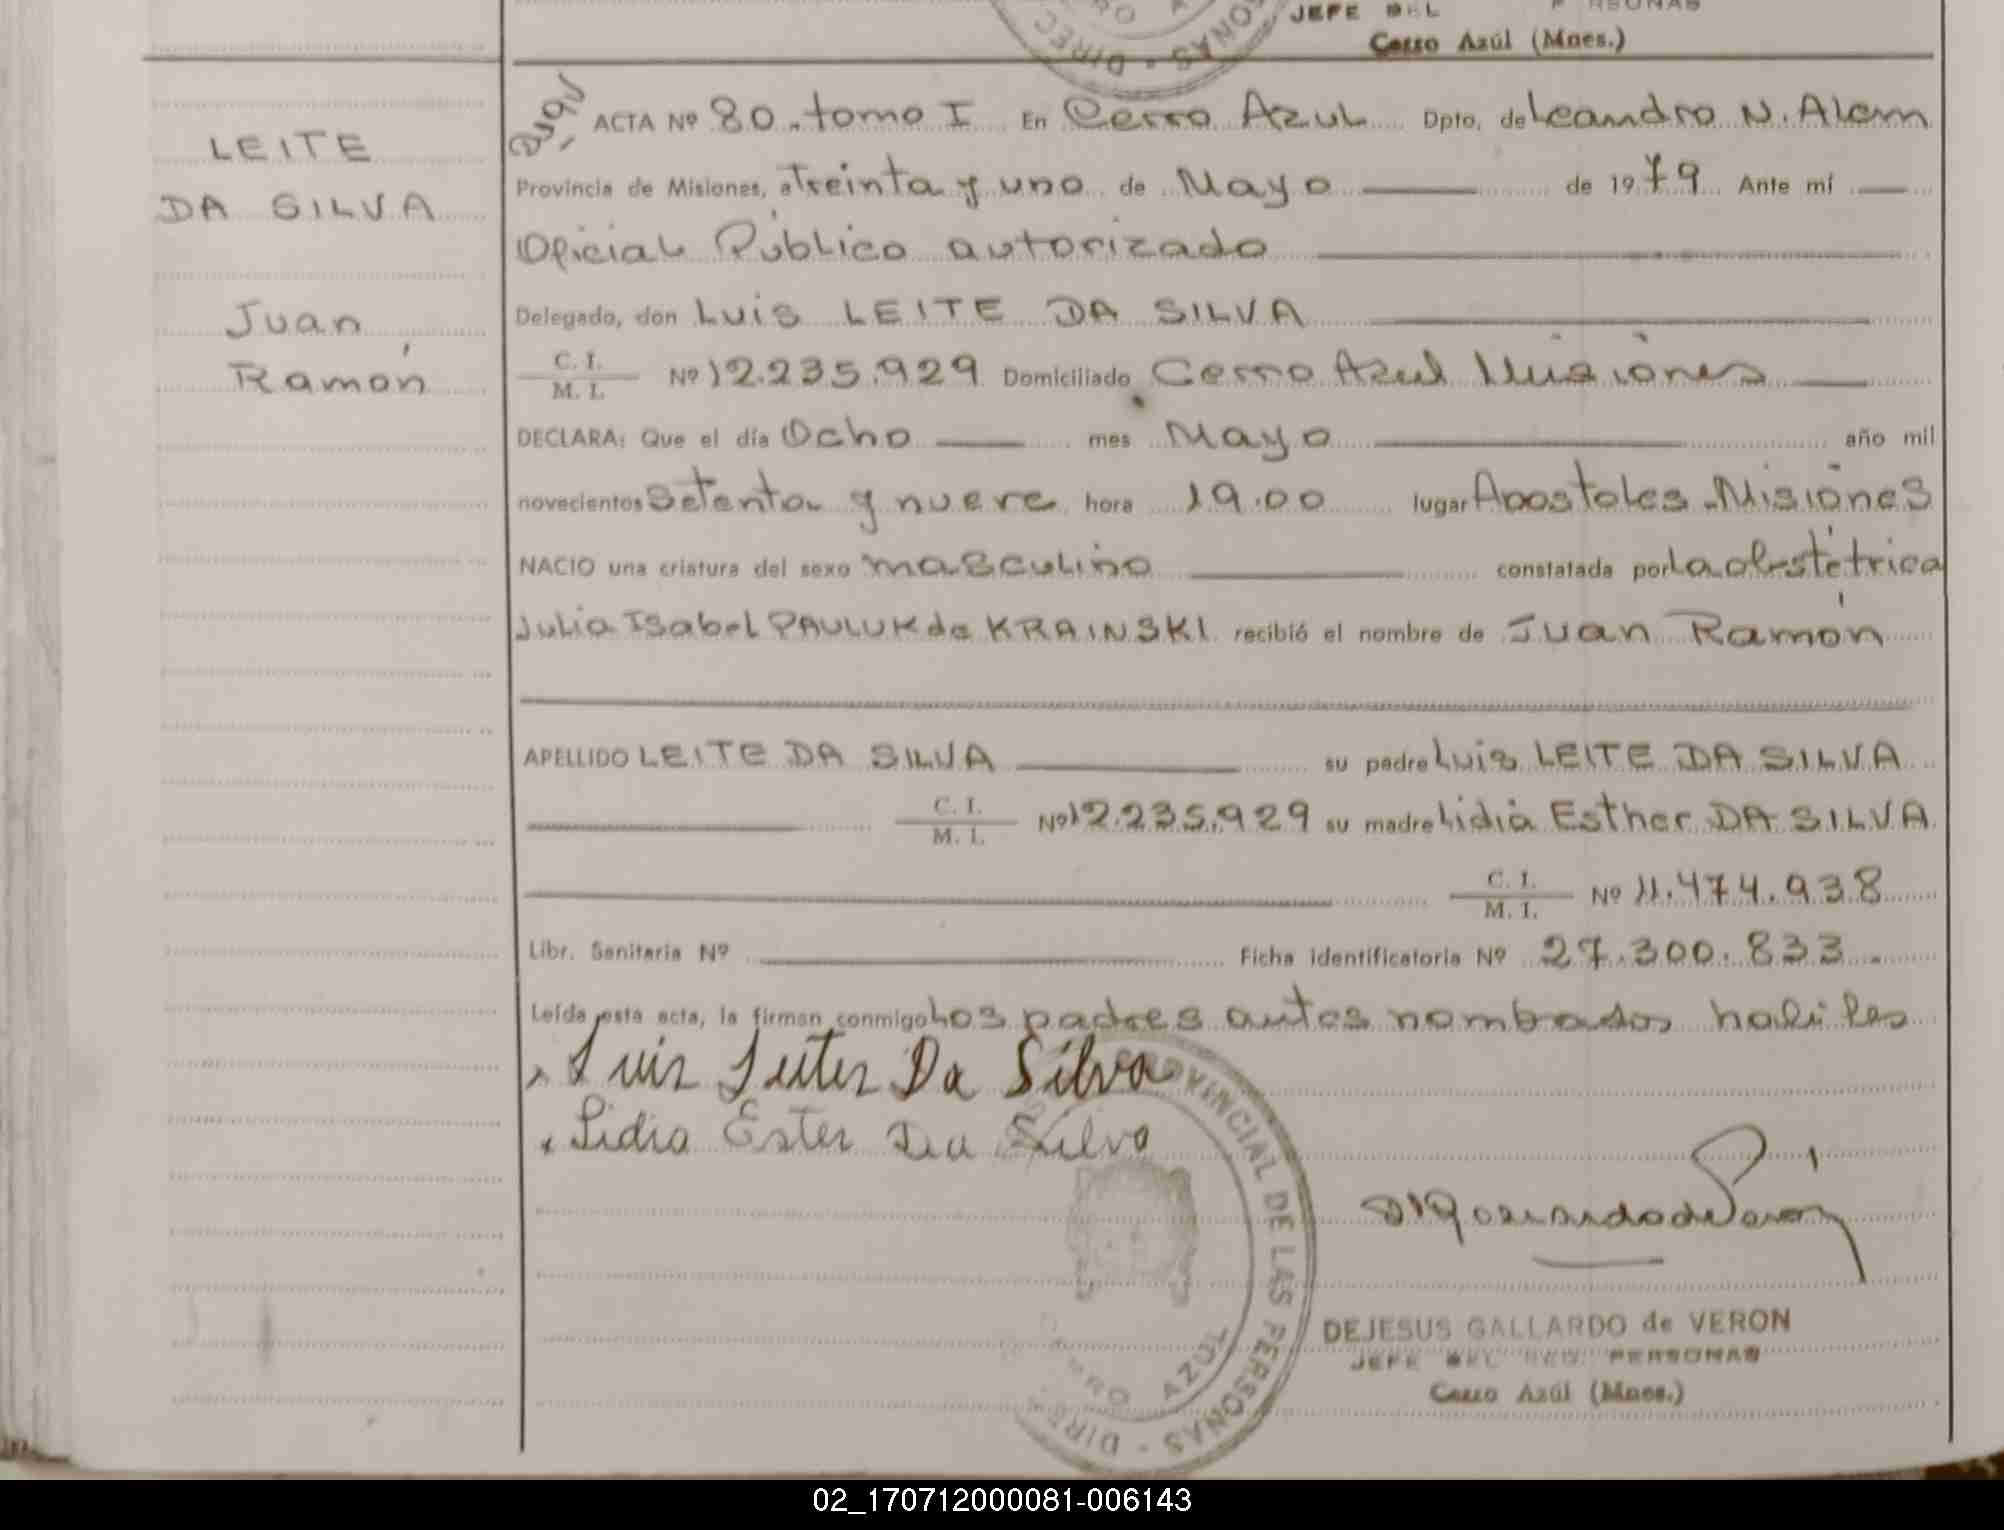 JEFE DEL PERSONAS
Cerro Azúl (Mnes.)
LEITE
DA SILVA
Juan
Ramón
ACTA Nº 80. tomo I En Cerro Azul Dpto. de Leandro N. Alem
Provincia de Misiones, a Treinta y uno de Mayo de 1979 Ante mí
Oficial Público autorizado
Delegado, don Luis LEITE DA SILVA
C. I.
M. I. Nº 12.235.929 Domiciliado Cerro Azul Misiones
DECLARA: Que el día Ocho mes Mayo año mil
novecientos setenta y nueve hora 19.00 lugar Apostoles - Misiones
NACIO una criatura del sexo masculino constatada por La obstétrica
Julia Isabel PAULUK de KRAINSKI recibió el nombre de Juan Ramón
APELLIDO LEITE DA SILVA su padre Luis LEITE DA SILVA
C. I.
M. I. Nº 12.235.929 su madre Lidia Esther DA SILVA
C. I.
M. I. Nº 11.474.938
Libr. Sanitaria Nº Ficha identificatoria Nº 27.300.833.
Leída esta acta, la firman conmigo Los padres antes nombrados habiles
Luis Leites Da Silva
Lidia Ester Da Silva
DIREC PROVINCIAL DE LAS PERSONAS
CERRO AZUL
DEJESUS GALLARDO de VERON
JEFE DEL REG. PERSONAS
Cerro Azúl (Mnes.)
02_170712000081-006143